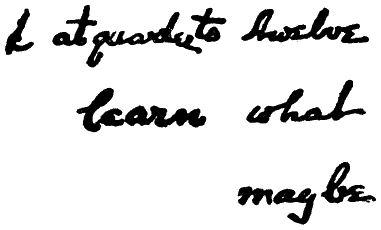 at quarter to twelve
learn what
maybe